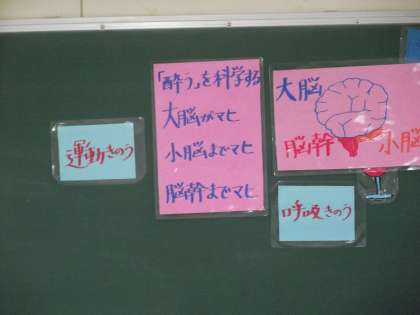 「酔う」を科学する
大脳がマヒ
小脳までマヒ
脳幹までマヒ
運動きのう
大脳
脳幹
小脳
呼吸きのう